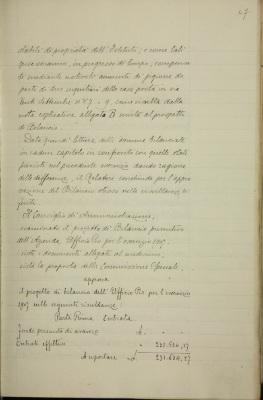 47
stabili di proprietà dell'Istituto; e come tali
spese saranno, in progresso di tempo, compensa-
te mediante notevoli aumenti di pigione da
parte di vari inquilini delle case poste in via
Venti Settembre N° 7 - 9, come risulta dalla
nota esplicativa allegato B unita al progetto
di Bilancio.
Data quindi lettura delle somme bilanciate
in ciascun capitolo in confronto con quelle state
previste nel precedente esercizio dando ragione
delle differenze, il Relatore conchiude per l'appro-
vazione del Bilancio stesso nelle risultanze
Il Consiglio di Amministrazione,
esaminato il progetto di Bilancio preventivo
dell'Azienda Ufficio Pio per l'esercizio 1907;
visti i documenti allegati al medesimo;
vista la proposta della Commissione speciale,
approva
il progetto di bilancio dell'Ufficio Pio per l'esercizio
1907 nelle seguenti risultanze:
Parte Prima Entrata
Fondo presunto di avanzo £ - -
Entrate effettive " 231.624,27
A riportare £ 231.624,27